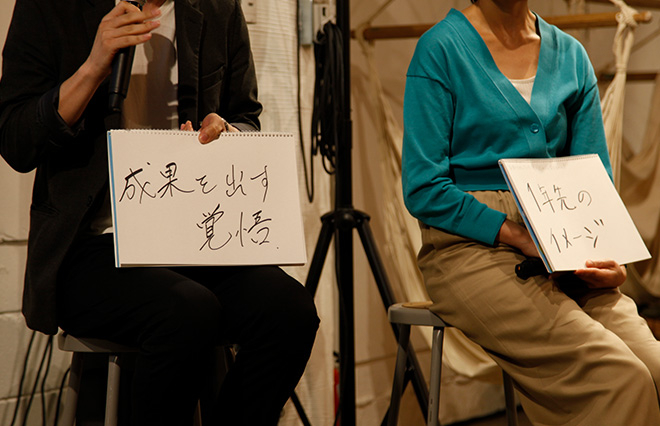 成果を出す
覚悟.
1年先の
イメージ